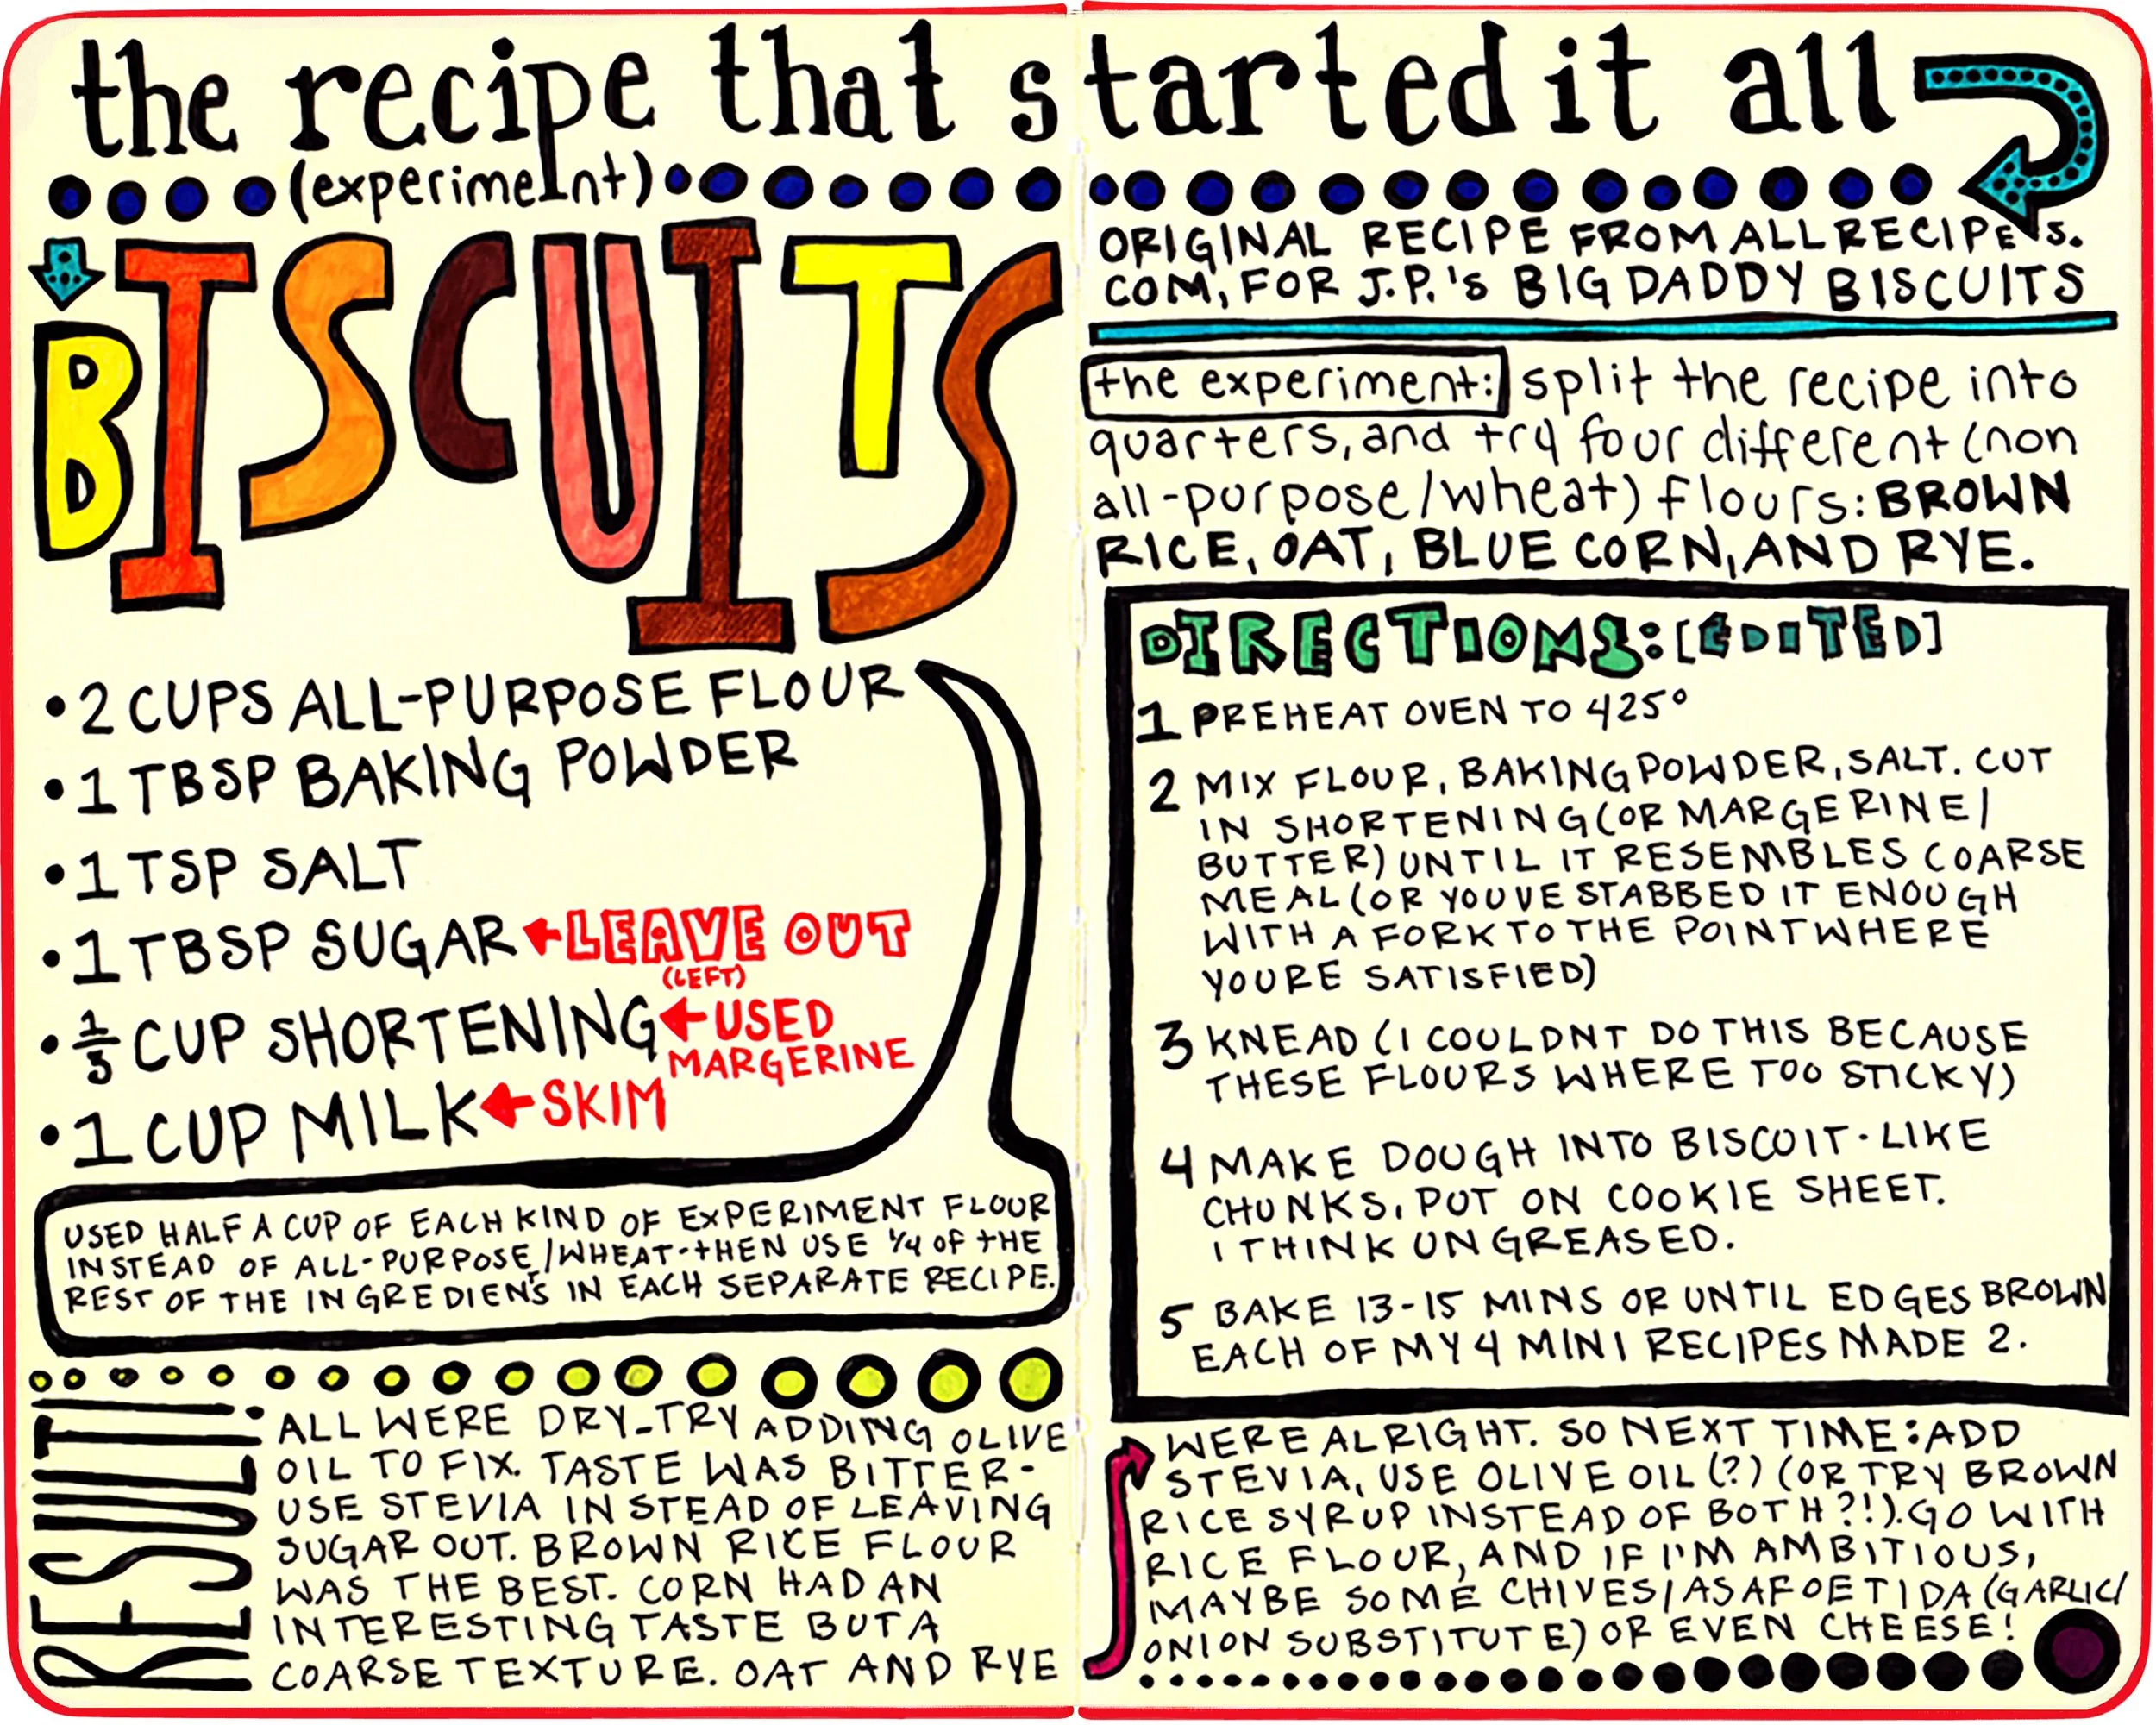 the recipe that started it all
(experiment)
BISCUITS
• 2 CUPS ALL-PURPOSE FLOUR
• 1 TBSP BAKING POWDER
• 1 TSP SALT
• 1 TBSP SUGAR LEAVE OUT
(LEFT)
• 1/3 CUP SHORTENING USED
MARGERINE
• 1 CUP MILK SKIM
USED HALF A CUP OF EACH KIND OF EXPERIMENT FLOUR
INSTEAD OF ALL-PURPOSE/WHEAT-THEN USE 1/4 OF THE
REST OF THE INGREDIENTS IN EACH SEPARATE RECIPE.
RESULT!
ALL WERE DRY-TRY ADDING OLIVE
OIL TO FIX. TASTE WAS BITTER-
USE STEVIA INSTEAD OF LEAVING
SUGAR OUT. BROWN RICE FLOUR
WAS THE BEST. CORN HAD AN
INTERESTING TASTE BUT A
COARSE TEXTURE. OAT AND RYE
ORIGINAL RECIPE FROM ALLRECIPES.
COM, FOR J.P.'S BIG DADDY BISCUITS
the experiment: split the recipe into
quarters, and try four different (non
all-purpose/wheat) flours: BROWN
RICE, OAT, BLUE CORN, AND RYE.
DIRECTIONS: [EDITED]
1 PREHEAT OVEN TO 425°
2 MIX FLOUR, BAKING POWDER, SALT. CUT
IN SHORTENING (OR MARGERINE/
BUTTER) UNTIL IT RESEMBLES COARSE
MEAL (OR YOUVE STABBED IT ENOUGH
WITH A FORK TO THE POINT WHERE
YOURE SATISFIED)
3 KNEAD (I COULDNT DO THIS BECAUSE
THESE FLOURS WHERE TOO STICKY)
4 MAKE DOUGH INTO BISCUIT-LIKE
CHUNKS, PUT ON COOKIE SHEET.
I THINK UNGREASED.
5 BAKE 13-15 MINS OR UNTIL EDGES BROWN
EACH OF MY 4 MINI RECIPES MADE 2.
WERE ALRIGHT. SO NEXT TIME: ADD
STEVIA, USE OLIVE OIL (?) (OR TRY BROWN
RICE SYRUP INSTEAD OF BOTH?!). GO WITH
RICE FLOUR, AND IF I'M AMBITIOUS,
MAYBE SOME CHIVES/ASAFOETIDA (GARLIC/
ONION SUBSTITUTE) OR EVEN CHEESE!